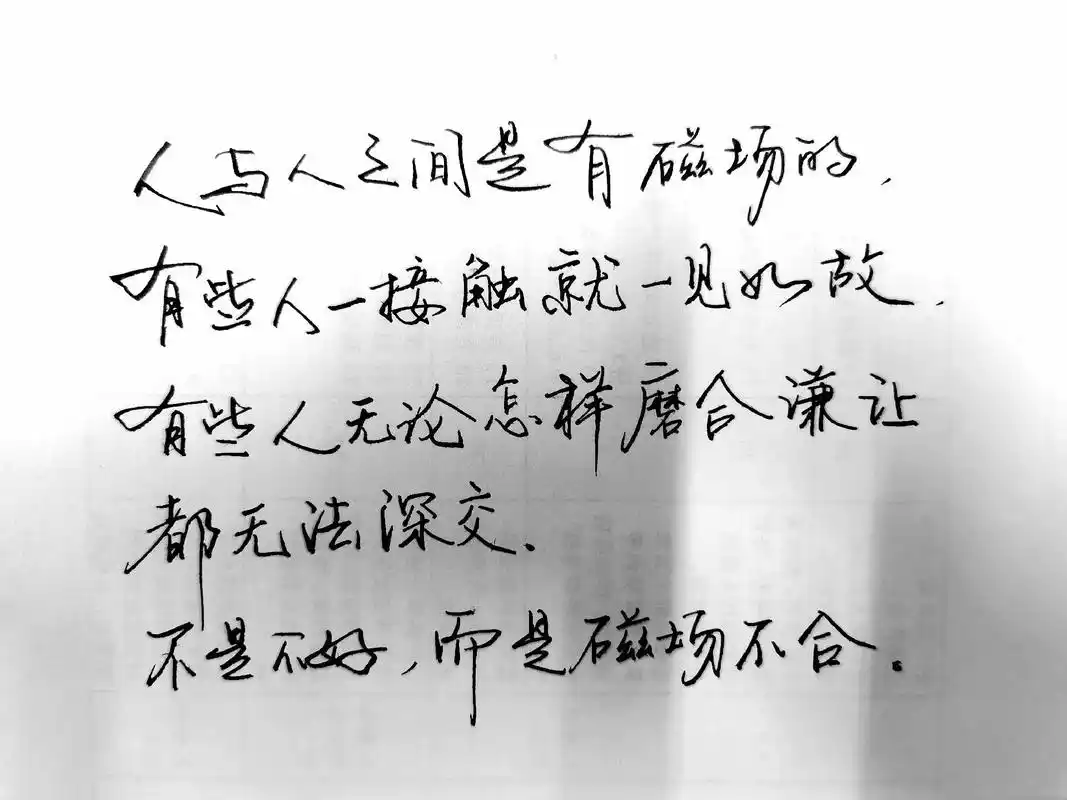 人与人之间是有磁场的,
有些人一接触就一见如故,
有些人无论怎样磨合谦让
都无法深交.
不是不好,而是磁场不合。